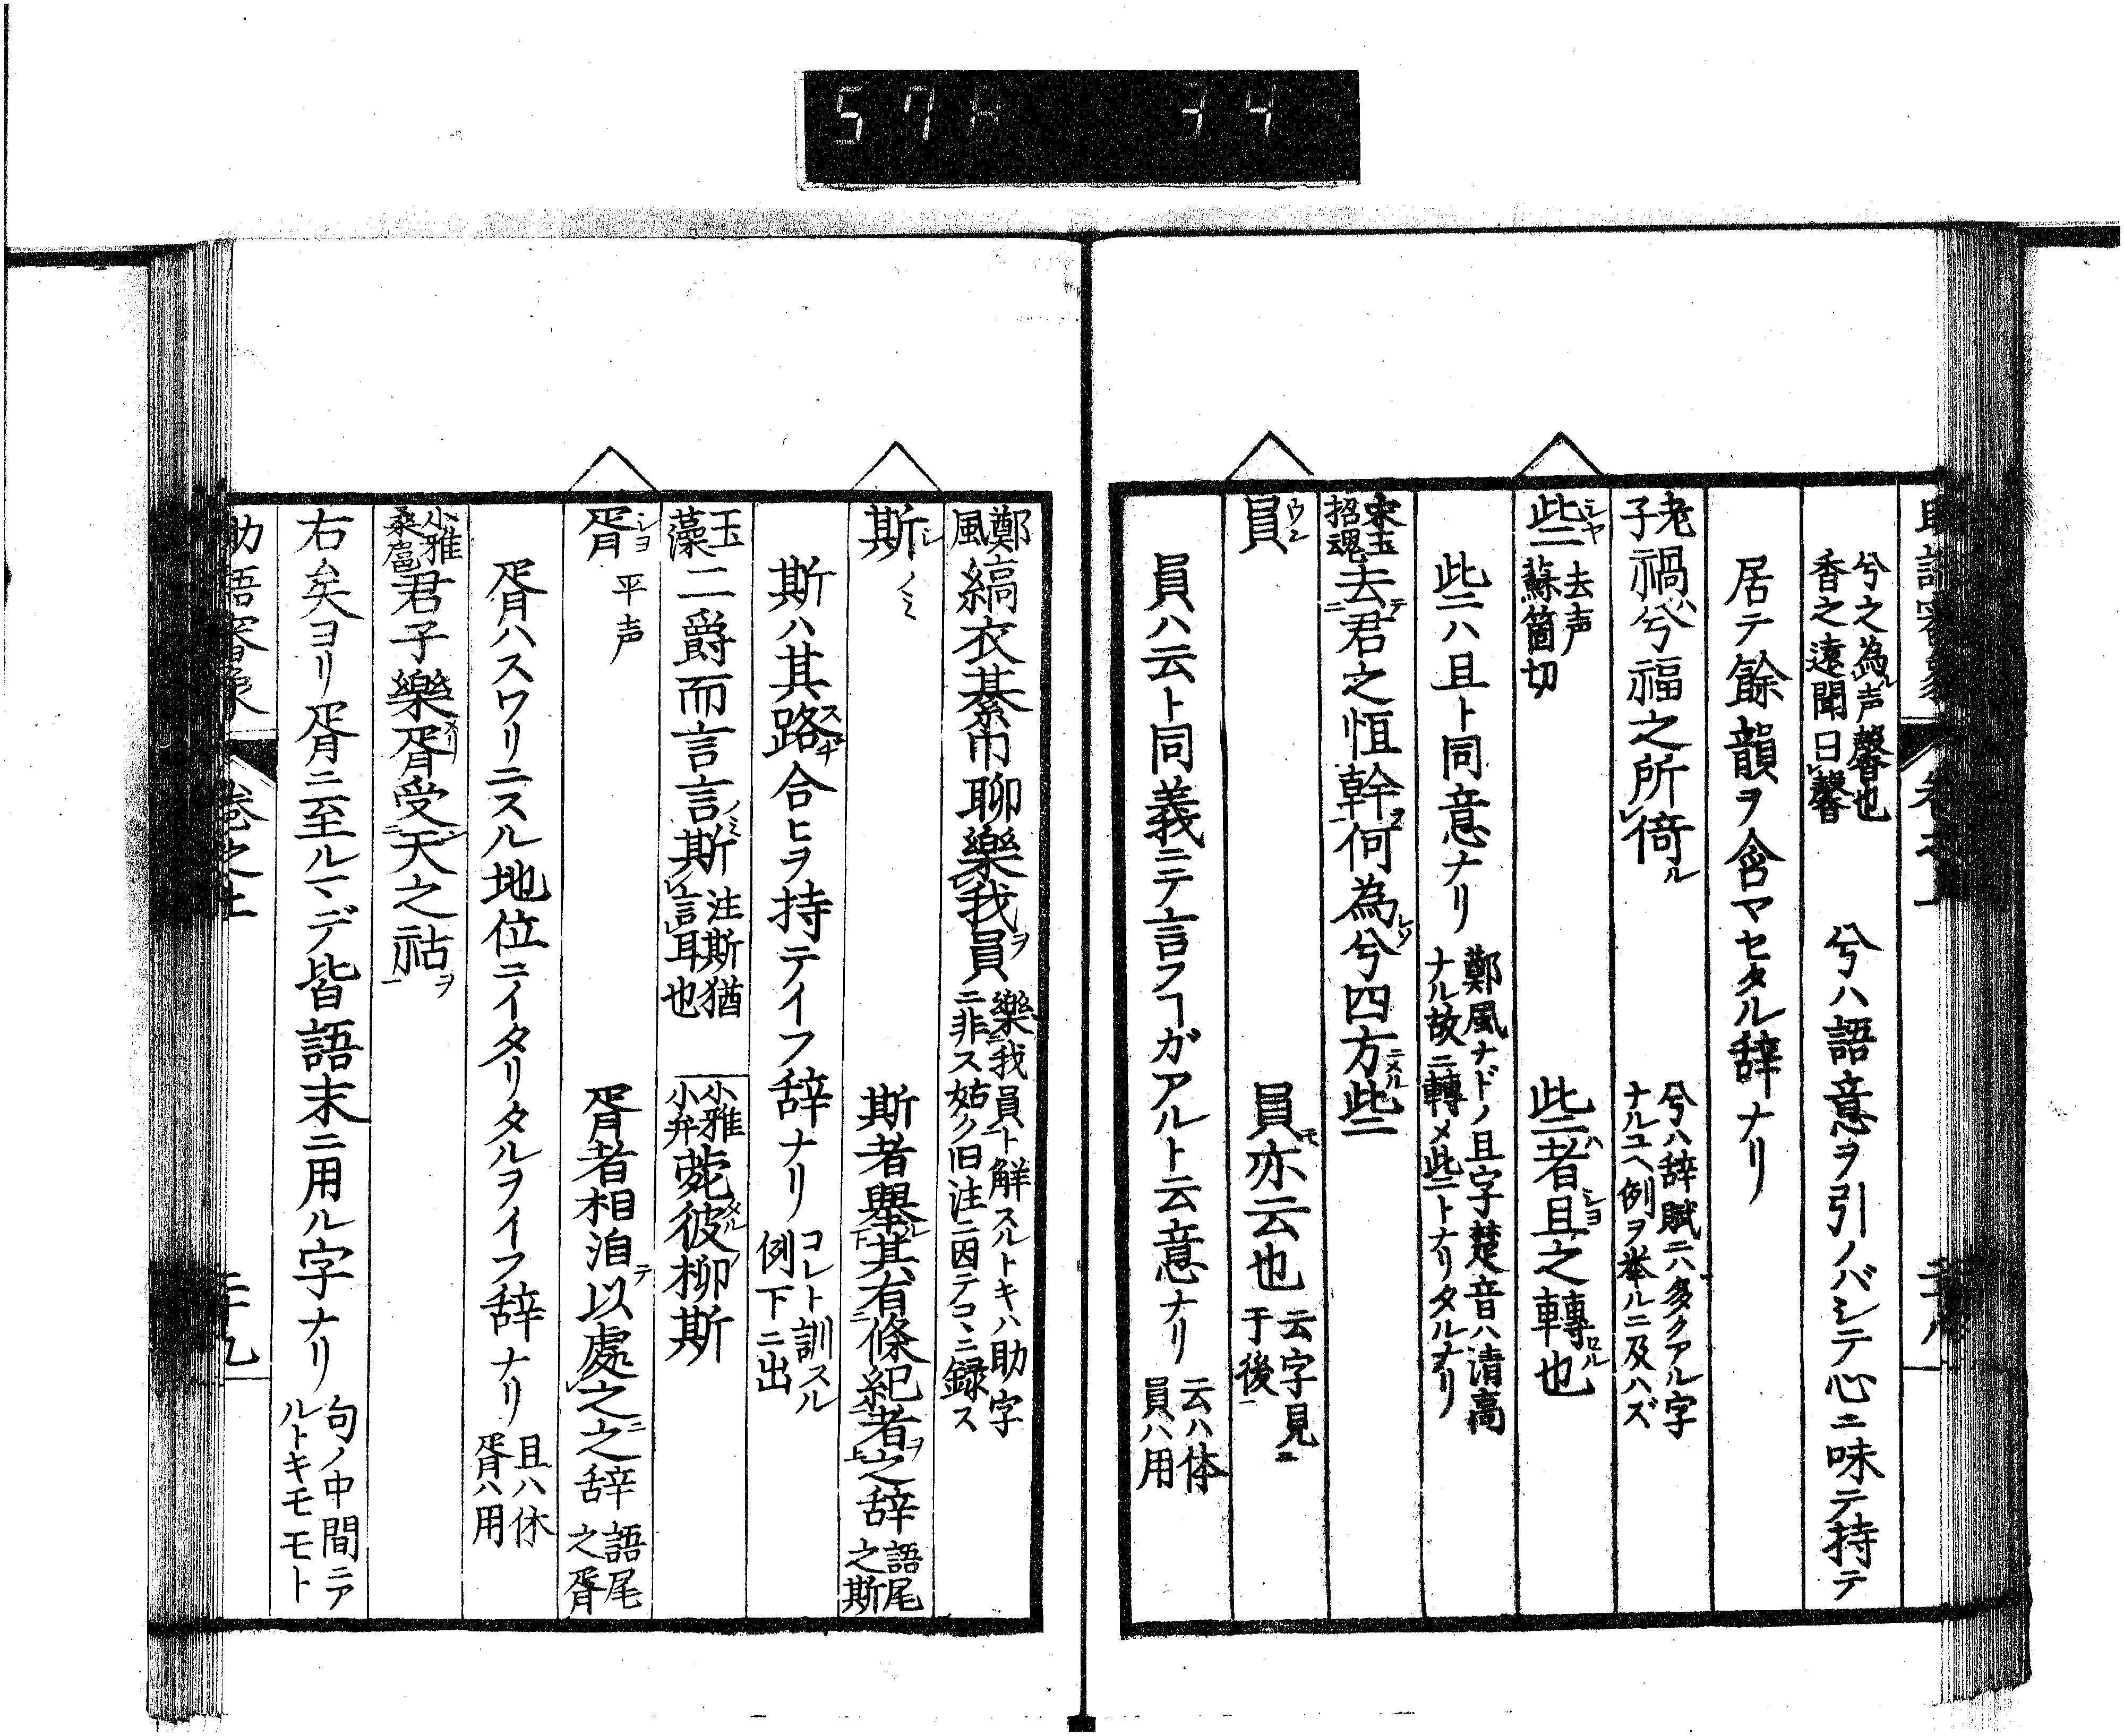 57A 34
兮之為声馨也
香之遠聞曰馨
兮ハ語意ヲ引ノバシテ心ニ味テ持テ
居テ餘韻ヲ含マセタル辞ナリ
老子
禍ハ兮福之所倚ル
兮ハ辞賦ニハ多クアル字
ナルユヘ例ヲ挙ルニ及ハズ
些シヤ
去声
蘇箇切
些者ハ且シヨ之轉也
些ハ且ト同意ナリ
鄭風ナドノ且字楚音ハ清高
ナル故ニ轉メ些トナリタルナリ
宋玉
招魂
去テ君之恒幹ヲ何為レソ兮四方些
員ウン
員モ亦云也
云字見ニ
于後一
員ハ云ト同義ニテ言フヿガアルト云意ナリ
云ハ体
員ハ用
鄭風
縞衣綦巾聊樂我ヲ員
樂我員ト解スルトキハ助字
ニ非ス姑ク旧注ニ因テコヽニ録ス
斯シ
ノミ
斯者舉其有條紀者ヲ之辞
語尾
之斯
斯ハ其路スヂ合ヒヲ持テイフ辞ナリ
コレト訓スル
例下ニ出
玉藻
二爵而言言斯ノミ
注斯猶
言耳也
小雅
小弁
菀タル彼柳斯
胥シヨ
平声
胥者相洎テ以處之ニ之辞
語尾
之胥
胥ハスワリニスル地位ニイタリタルヲイフ辞ナリ
且ハ体
胥ハ用
小雅
桑扈
君子樂胥受天之祜ヲ
右矣ヨリ胥ニ至ルマデ皆語末ニ用ル字ナリ
句ノ中間ニア
ルトキモモト
助語審象
卷之上
二十九